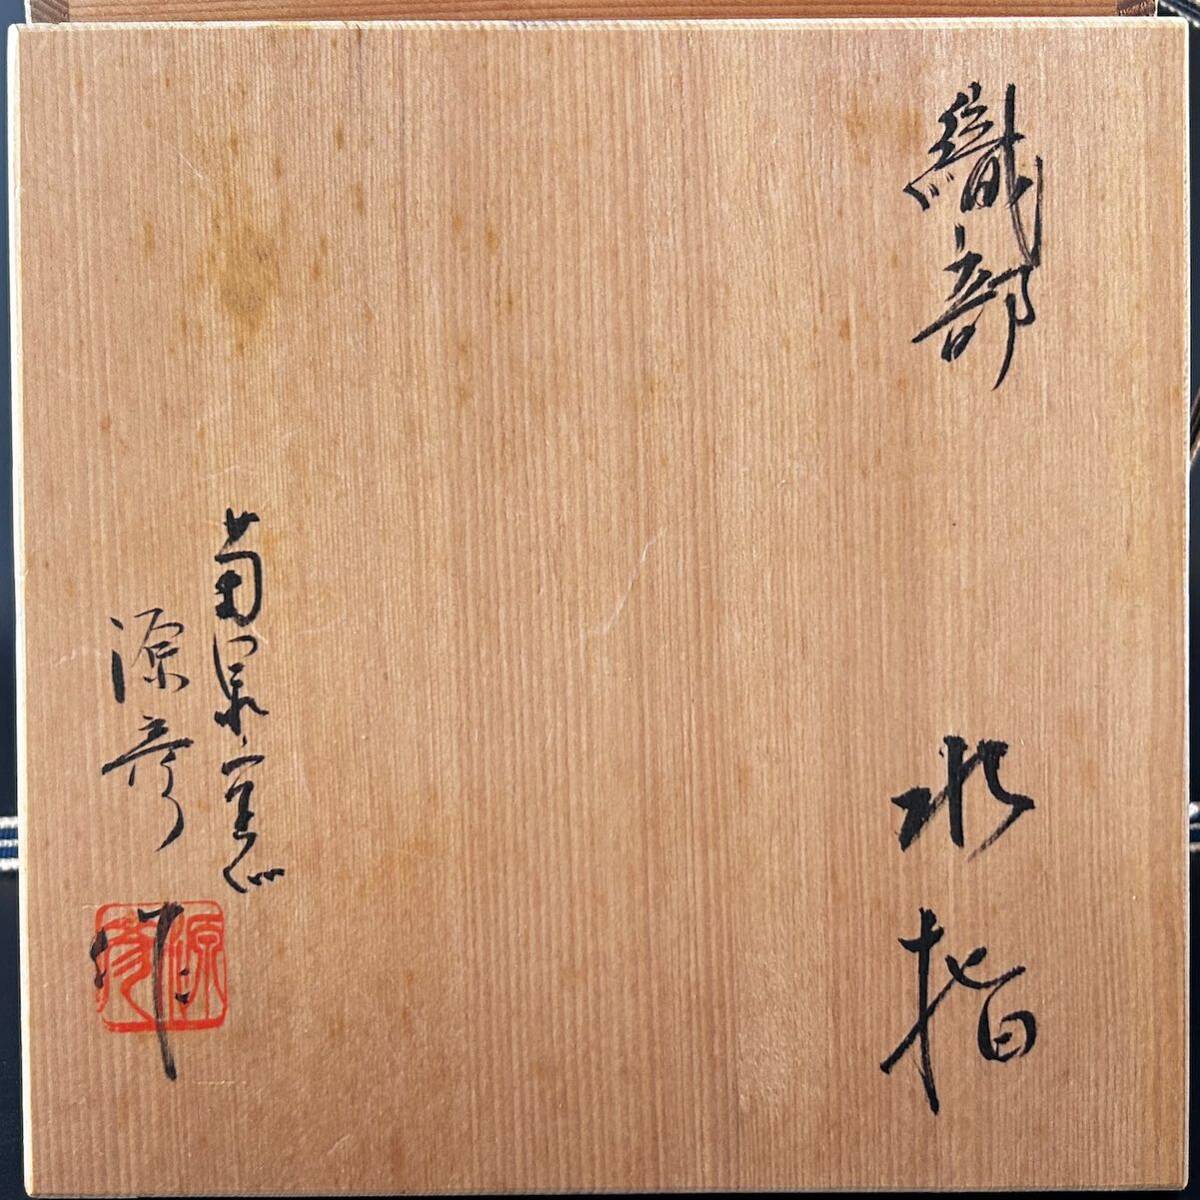 織部 水指
菊泉窯
源彦 作
源彦